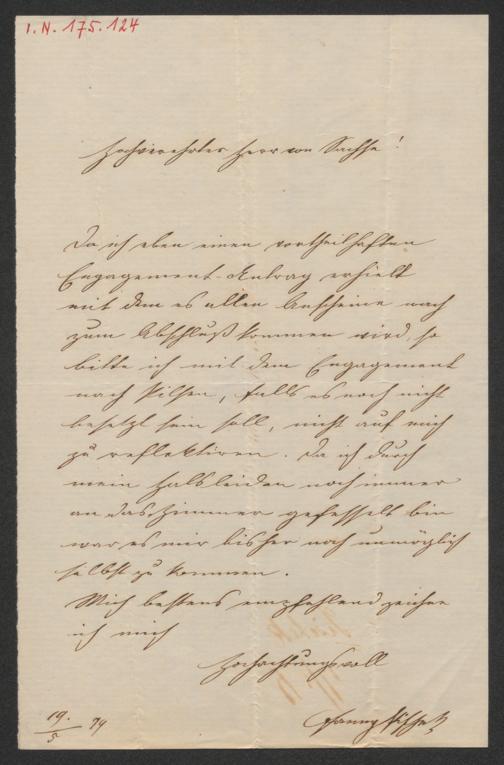 I.N. 175.124
Hochverehrter Herr von Sachse!
Da ich eben einen vortheilhaften
Engagement-Antrag erhielt
mit dem es allen Anscheine nach
zum Abschluß kommen wird, so
bitte ich mit dem Engagement
nach Pilsen, falls es noch nicht
besetzt sein soll, nicht auf mich
zu reflektiren. Da ich durch
mein Halsleiden noch immer
an das Zimmer gefesselt bin
war es mir bisher noch unmöglich
selbst zu kommen.
Mich bestens empfehlend zeichne
ich mich
Hochachtungsvoll
19./5 79
Fanny